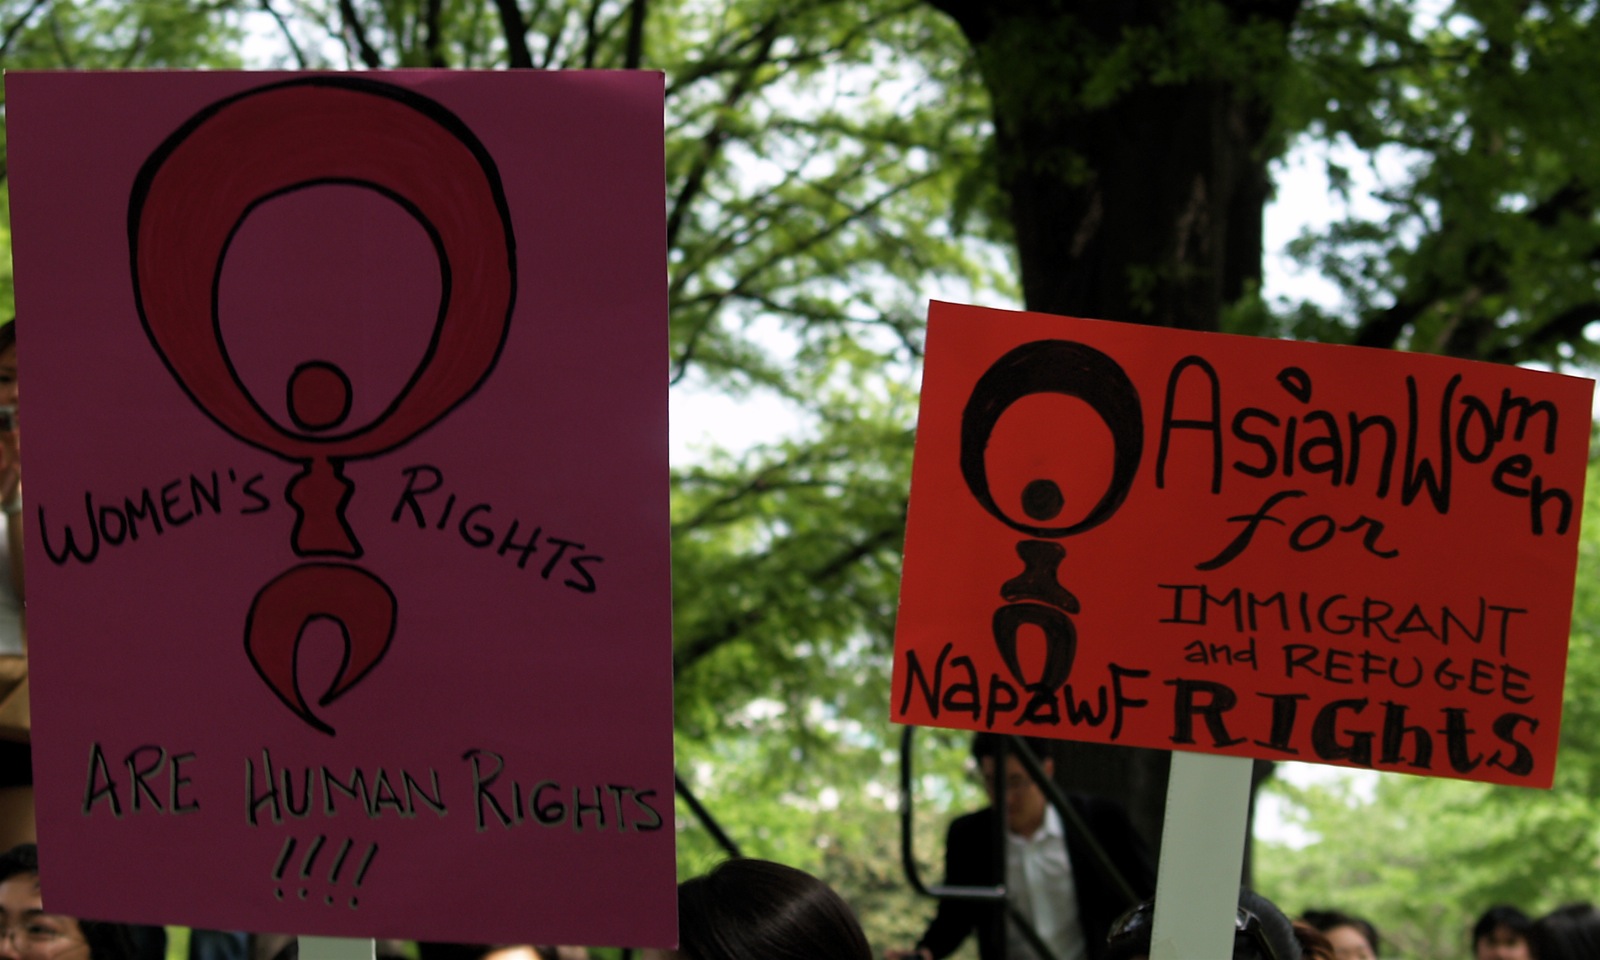 WOMEN'S RIGHTS
ARE HUMAN RIGHTS
!!!!
Asian Women
for
IMMIGRANT
and REFUGEE
RIGhtS
NapawF